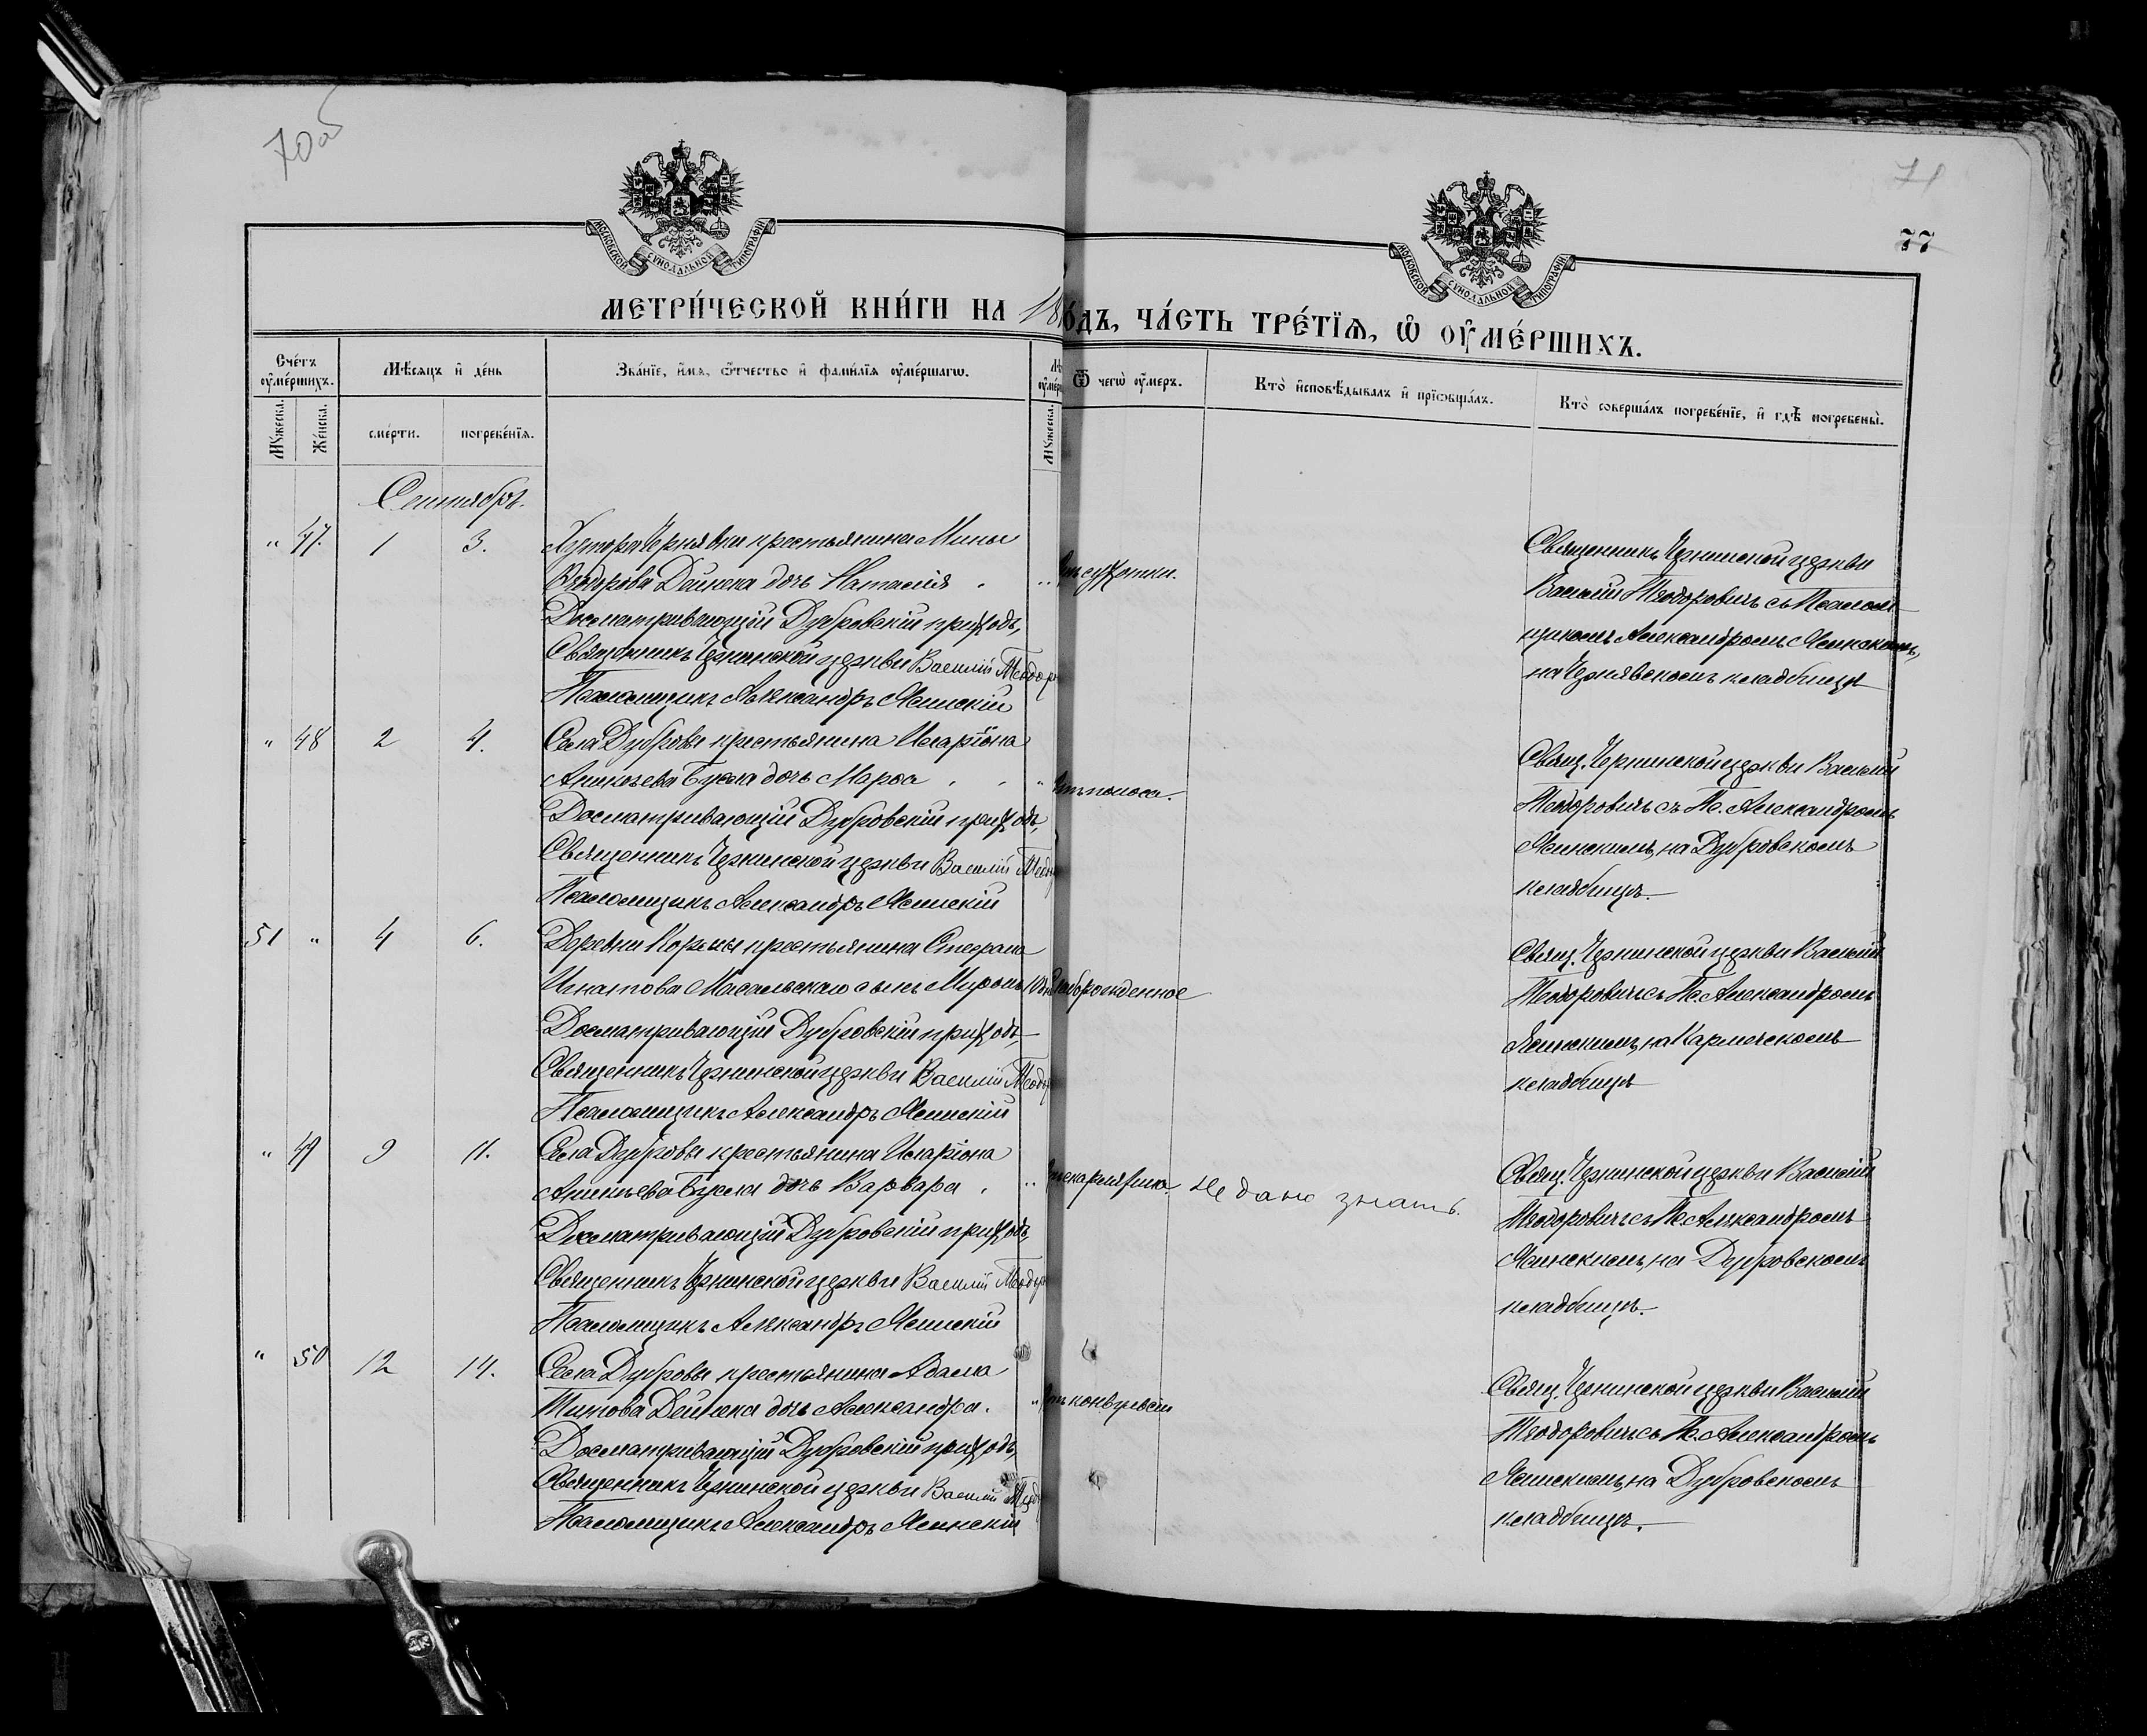 70 об
71
77
МОСКОВСКОЙ СѴНОДАЛЬНОЙ ТИПОГРАФІИ
МОСКОВСКОЙ СѴНОДАЛЬНОЙ ТИПОГРАФІИ
МЕТРИ́ЧЕСКОЙ КНИ́ГИ НА 18
О́ДЪ, ЧА́СТЬ ТРЕ́ТЇѦ, Ѽ ОУМЕ́РШИХЪ.
Сче́тъ оуме́ршихъ.
Мѣсяцъ и де́нь
Зва́нїе, и́мя, ѻтчество и фами́лїя оуме́ршагѡ.
Ѿ чегѡ̀ оу́меръ.
Кто̀ исповѣ́дывалъ и прїѡбща́лъ.
Кто̀ соверша́лъ погребе́нїе, и гдѣ̀ погребены̀.
Мꙋжеска.
Же́нска.
сме́рти.
погребе́нїя.
Мꙋжеска.
Сентябрь.
" 47. 1 3. Хутора Чернявки крестьянина Мины
Ѳеодорова Дейнека дочь Наталія
Досматривающій Дубровскій приходъ,
Священникъ Чернинской церкви Василій Теодор
Псаломщикъ Александръ Ясинскій
Отъ сухотки.
Священникъ Чернинской церкви
Василій Теодоровичъ съ Псаломщ
щикомъ Александромъ Ясинскимъ,
на Чернявскомъ кладбищѣ
" 48 2 4. Села Дубровы крестьянина Иларіона
Дочь Марѳа
Досматривающій Дубровскій приходъ,
Священникъ Чернинской церкви Василій Теодо
Псаломщикъ Александръ Ясинскій
Отъ поноса.
Свящ. Чернинской церкви Василій
Теодоровичъ съ Пс. Александромъ
Ясинскимъ, на Дубровскомъ
кладбищѣ.
51 " 4 6. Деревни Кормы крестьянина Стефана
Игнатова Масальскаго сынъ Миронъ
Слаборожденное
Досматривающій Дубровскій приходъ,
Священникъ Чернинской церкви Василій Теодо
Псаломщикъ Александръ Ясинскій
Свящ. Чернинской церкви Василій
Теодоровичъ съ Пс. Александромъ
Ясинскимъ, на Кармотскомъ
кладбищѣ
" 49 9 11. Села Дубровы крестьянина Иларіона
дочь Варвара
Досматривающій Дубровскій приходъ,
Священникъ Чернинской церкви Василій Теодор
Псаломщикъ Александръ Ясинскій
Отъ скарлятина. Не дано знать.
Свящ. Чернинской церкви Василій
Теодоровичъ съ Пс. Александромъ
Ясинскимъ, на Дубровскомъ
кладбищѣ.
" 50 12 14. Села Дубровы крестьянина Адама
Титова Дейнека дочь Александра.
Досматривающій Дубровскій приходъ,
Священникъ Чернинской церкви Василій Теодо
Псаломщикъ Александръ Ясинскій
Отъ конвульсіи
Свящ. Чернинской церкви Василій
Теодоровичъ съ Пс. Александромъ
Ясинскимъ, на Дубровскомъ
кладбищѣ.